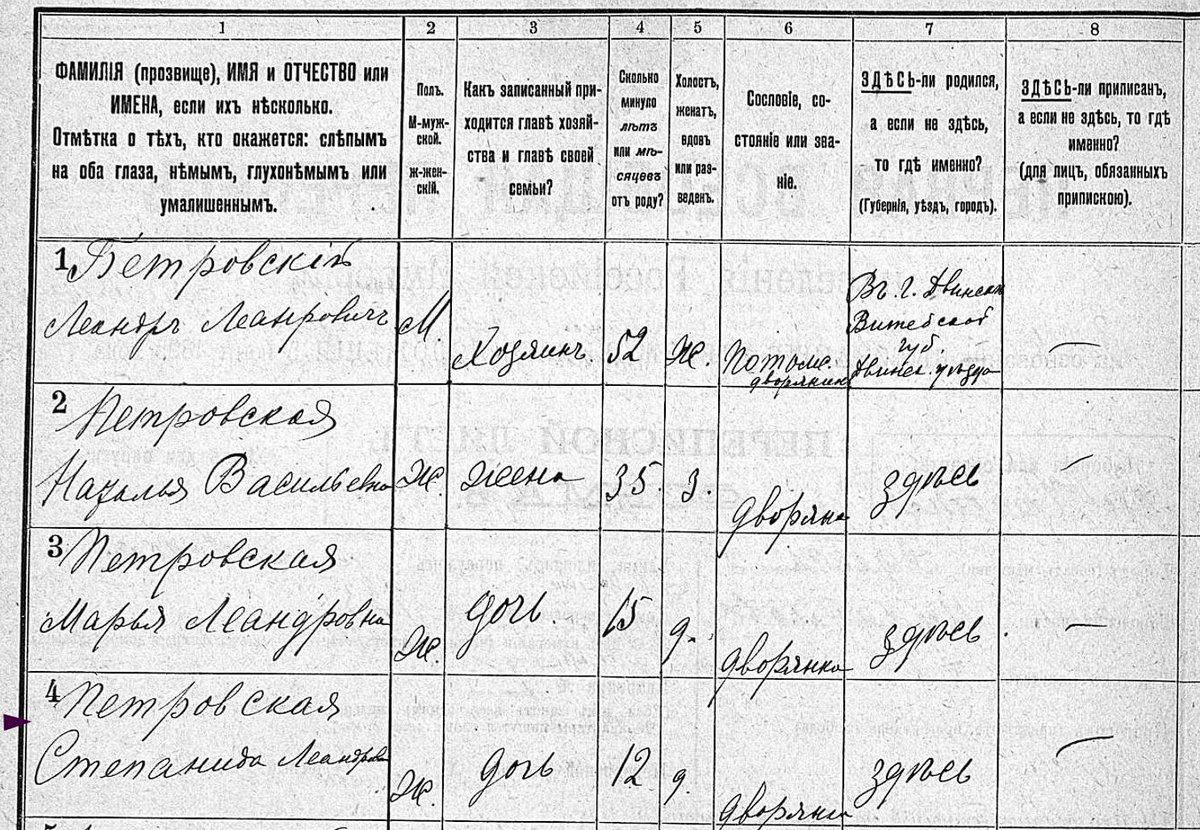 1
2
3
4
5
6
7
8
ФАМИЛІЯ (прозвище), ИМЯ и ОТЧЕСТВО или
ИМЕНА, если ихъ нѣсколько.
Отмѣтка о тѣхъ, кто окажется: слѣпымъ
на оба глаза, нѣмымъ, глухонѣмымъ или
умалишеннымъ.
Полъ.
М-муж-
ской.
ж-жен-
скій.
Какъ записанный при-
ходится главѣ хозяй-
ства и главѣ своей
семьи?
Сколько
минуло
лѣтъ
или мѣ-
сяцевъ
отъ роду?
Холостъ,
женатъ,
вдовъ
или раз-
веденъ.
Сословіе, со-
стояніе или зва-
ніе.
ЗДѢСЬ-ли родился,
а если не здѣсь,
то гдѣ именно?
(Губернія, уѣздъ, городъ).
ЗДѢСЬ-ли приписанъ,
а если не здѣсь, то гдѣ
именно?
(для лицъ, обязанныхъ
припискою).
1 Петровскій
Леандръ Леанровичъ
М
Хозяинъ
52
Ж.
Потом.
дворянин
Въ г. Двинске
Витебской
губ
Двинск. уѣзда
—
2 Петровская
Наталья Васильевна
Ж.
жена
35
з.
дворянка
здѣсь
—
3 Петровская
Марья Леандровна
Ж.
дочь
15
д.
дворянка
здѣсь
—
4 Петровская
Степанида Леандровна
Ж.
дочь
12
д.
дворянка
здѣсь
—